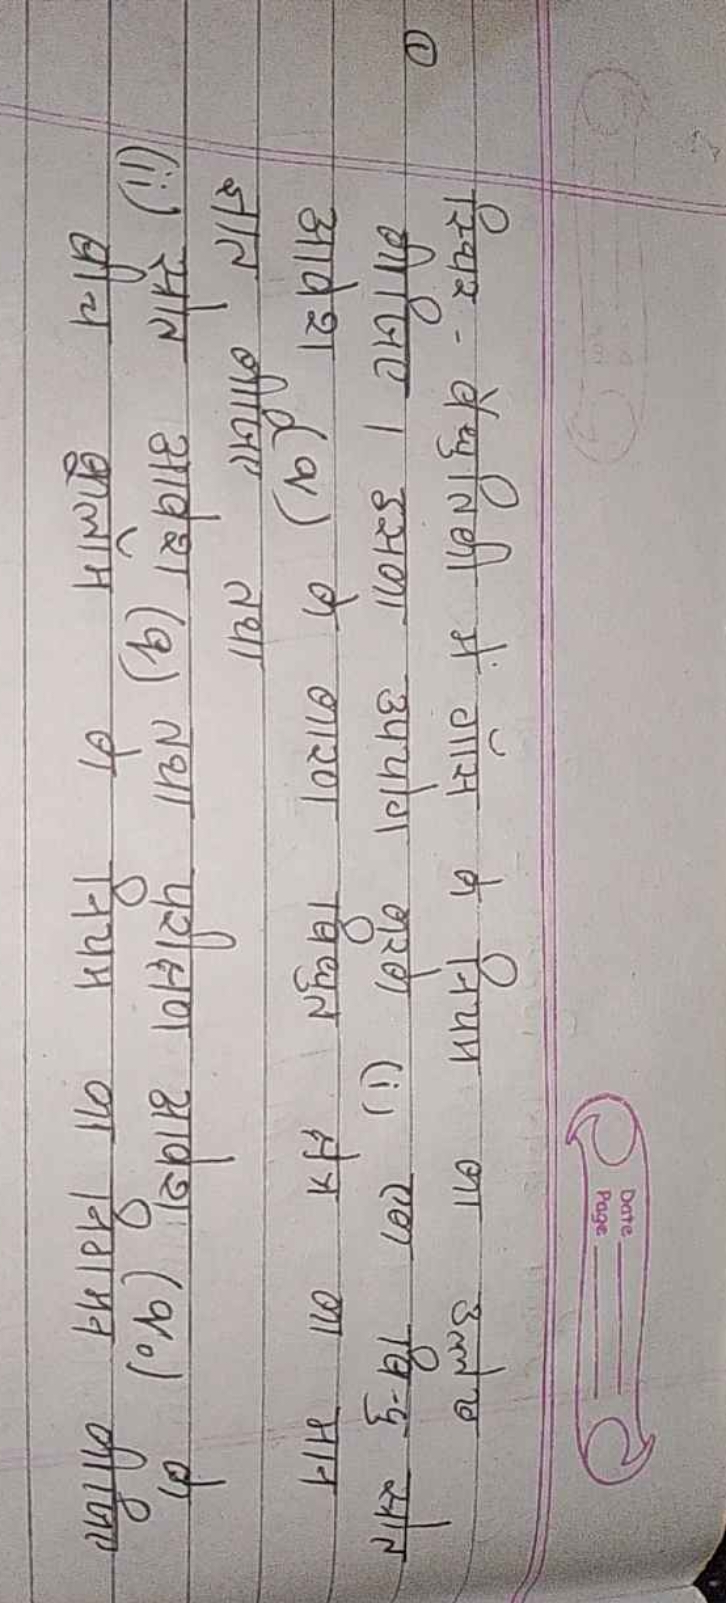 Date
Page
① स्थिर - वैधुतिकी में गॉस के नियम का उल्लेख
कीजिए । इसका उपयोग करके (i) एक बिन्दु स्रोत
आवेश (q) के कारण विधुत क्षेत्र का मान
ज्ञात कीजिए तथा
(ii) स्रोत आवेश (q) तथा परीक्षण आवेश (q₀) के
बीच कूलॉम के नियम का निगमन कीजिए